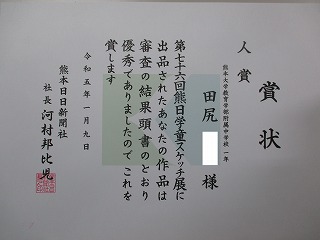 賞状
人賞
熊本大学教育学部附属中学校一年
田尻 様
第七十六回熊日学童スケッチ展に
出品されたあなたの作品は
審査の結果頭書のとおり
優秀でありましたのでこれを
賞します
令和五年一月九日
熊本日日新聞社
社長 河村邦比児